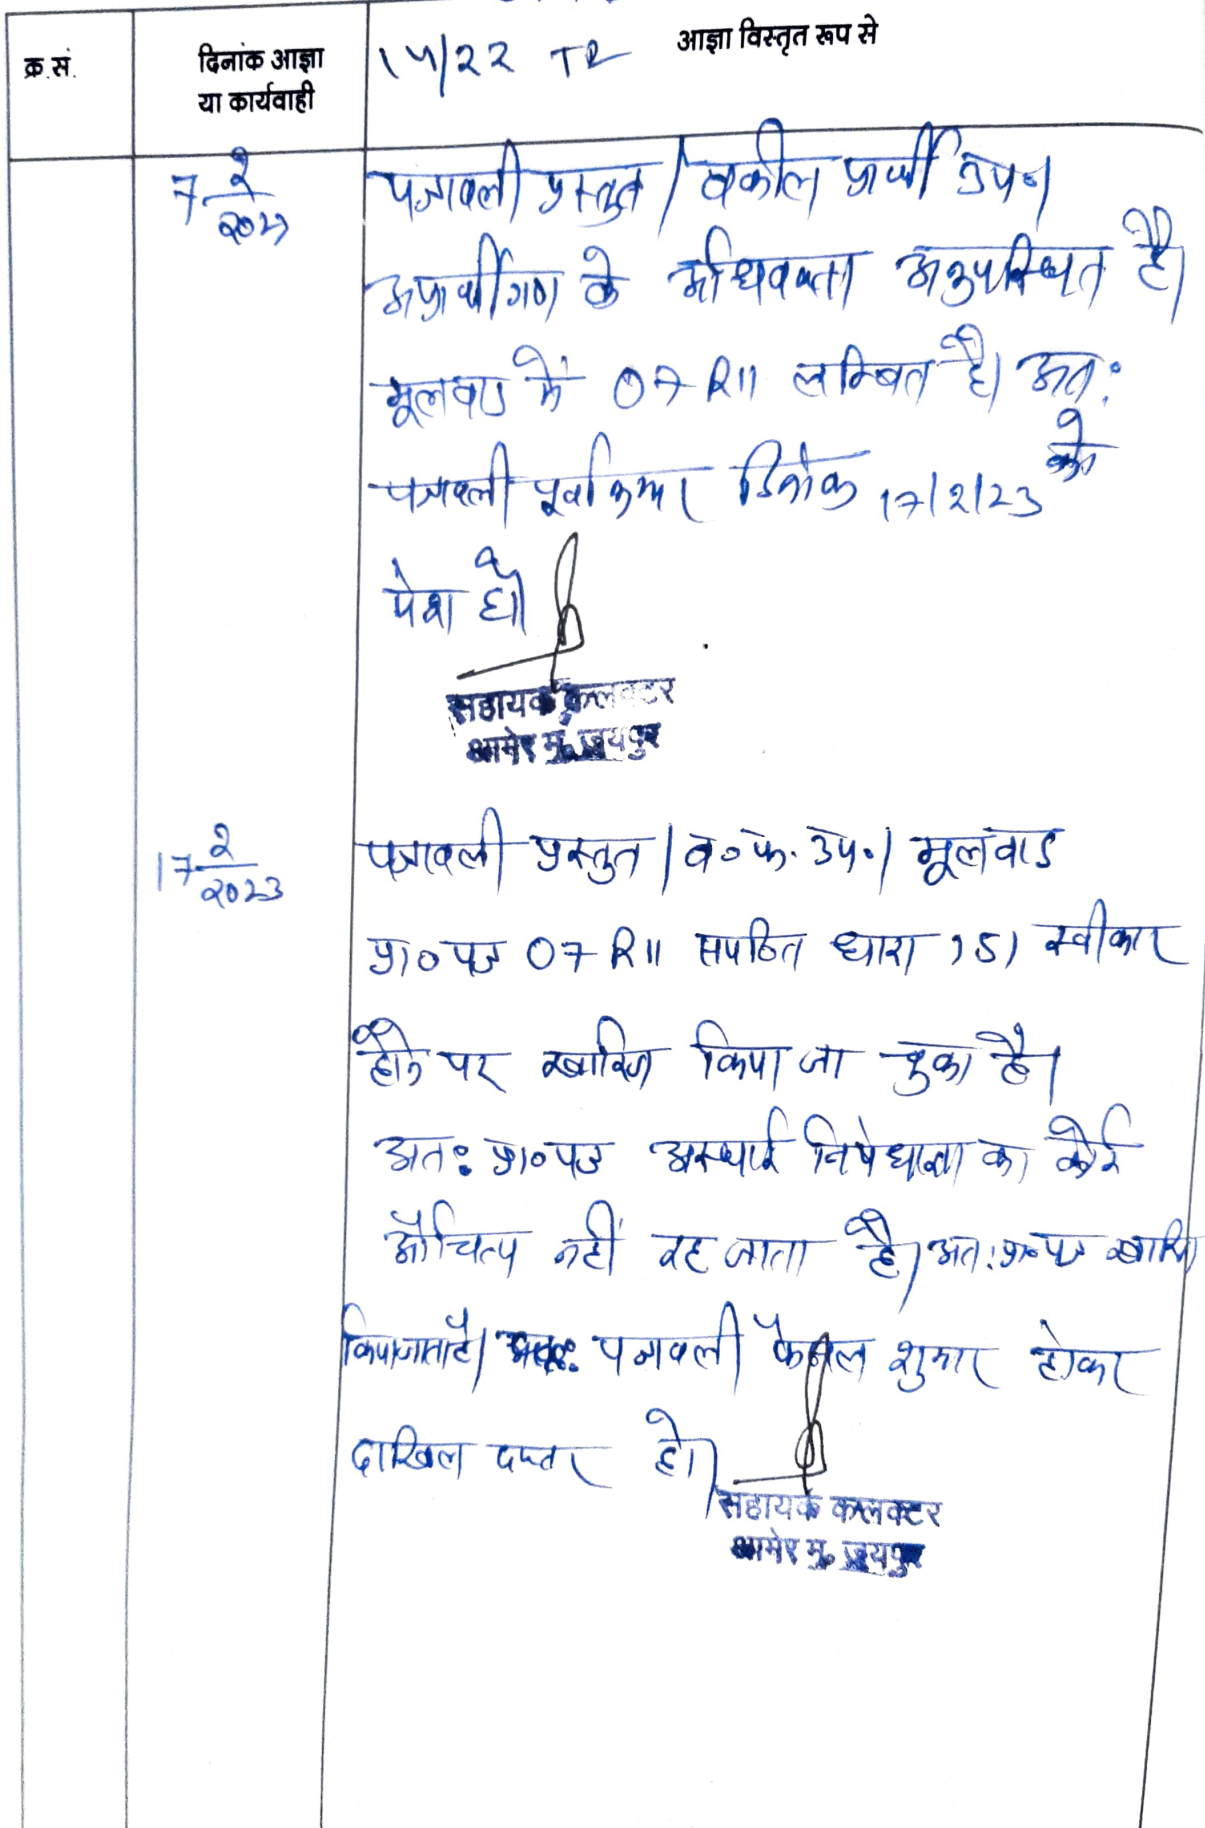 क्र.सं.
दिनांक आज्ञा
या कार्यवाही
आज्ञा विस्तृत रूप से
14/22 TR
7 2/2023
पत्रावली प्रस्तुत। वकील प्रार्थी उप॰।
अप्रार्थीगण के अधिवक्ता अनुपस्थित है।
मूलवाद में 07 R11 लम्बित है। अत:
पत्रावली पूर्वानुसार दिनांक 17/2/23 को
पेश हो।
सहायक कलक्टर
आमेर मु. जयपुर
17 2/2023
पत्रावली प्रस्तुत। व॰ फ. उप॰। मूलवाद
प्रा॰ पत्र 07 R11 सपठित धारा 151 स्वीकार
होने पर खारिज किया जा चुका है।
अत: प्रा॰ पत्र अस्थाई निषेधाज्ञा का कोई
औचित्य नहीं रह जाता है। अत: प्रा॰ पत्र खारिज
किया जाता है। पत्रावली फैसल शुमार होकर
दाखिल दफ्तर हो।
सहायक कलक्टर
आमेर मु. जयपुर